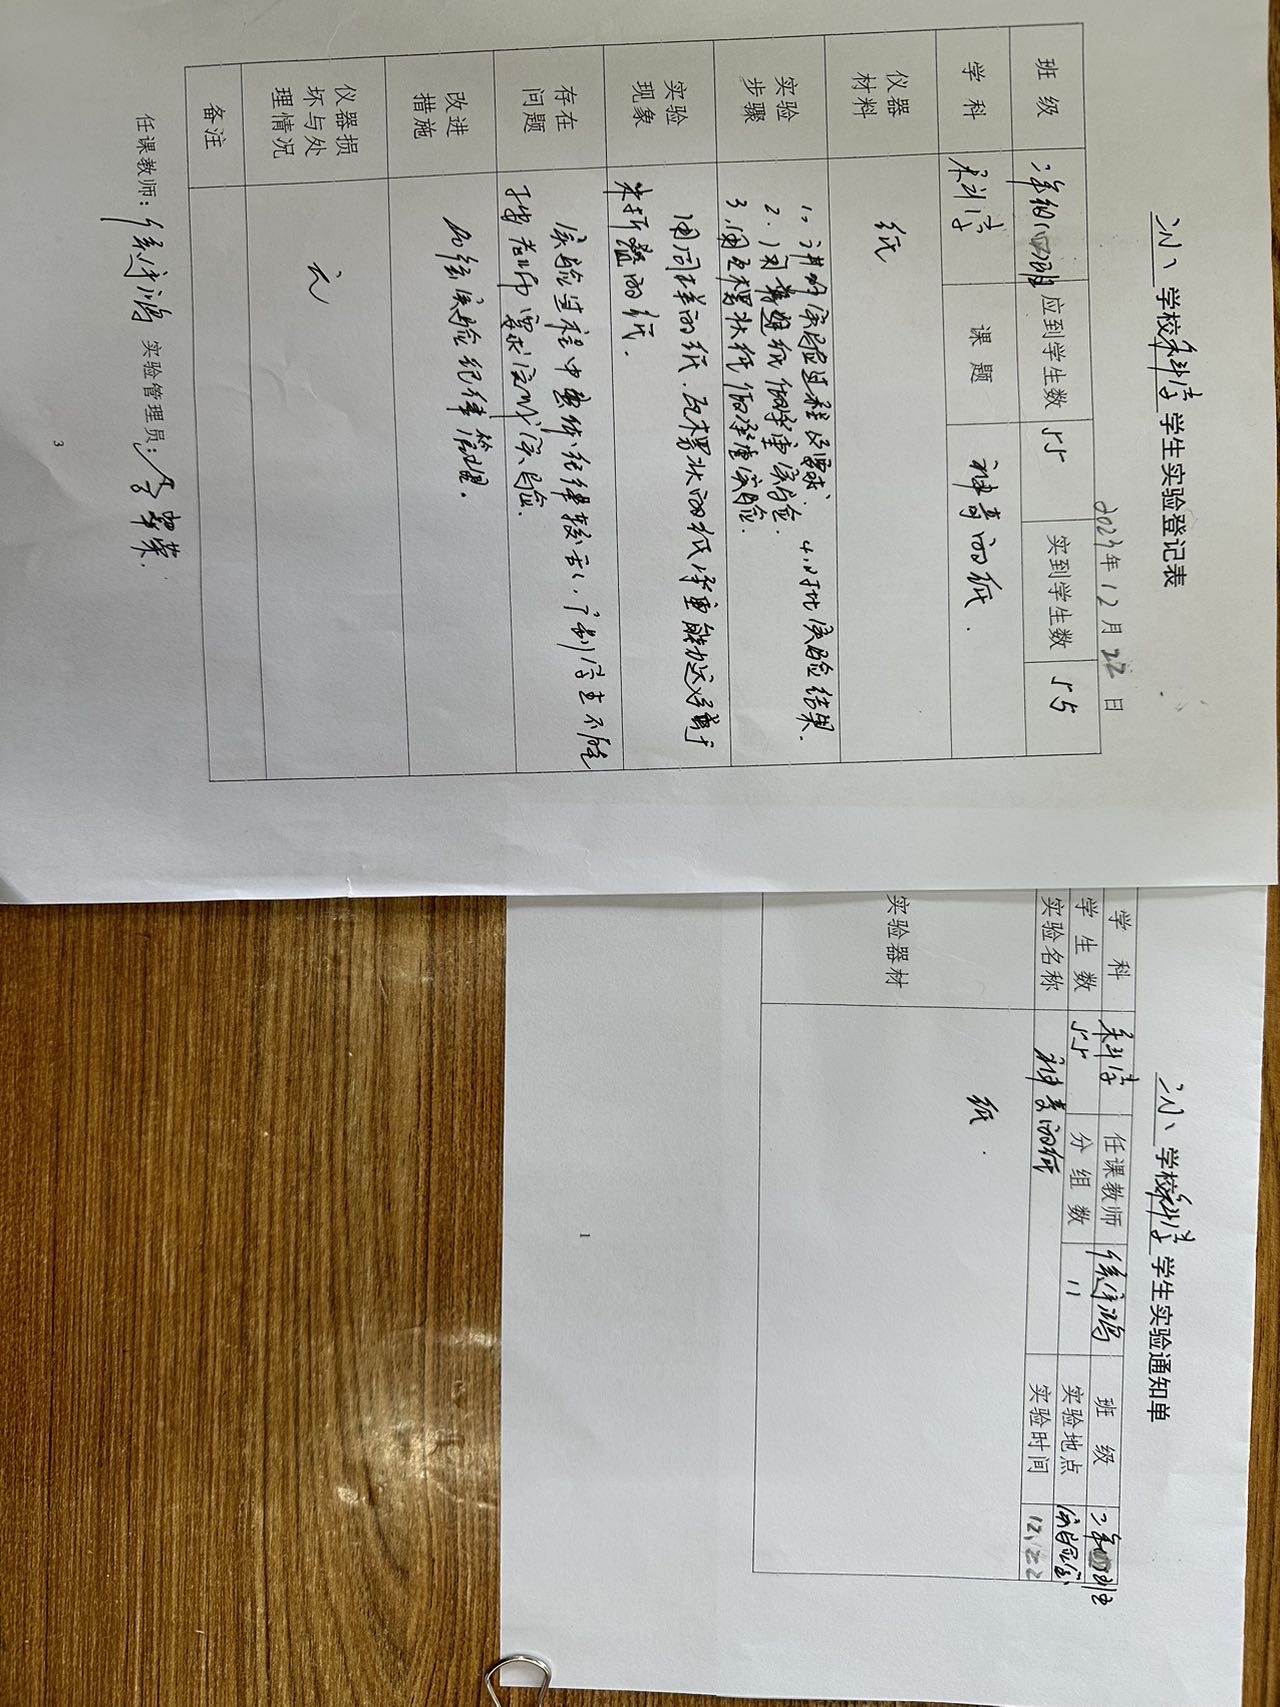 学校科学学生实验登记表
2023年12月22日
班级 二年级(四)班 应到学生数 55 实到学生数 55
学科 科学 课题 神奇的纸.
仪器材料 纸
实验步骤
1、讲明实验过程及要求. 4.对比实验结果.
2、用普通纸做承重实验.
3、用瓦楞状纸做承重实验.
实验现象
用同样的纸.瓦楞状的纸承重能力远远高于
未折叠的纸.
存在问题
实验过程中集体纪律较乱,个别学生不能
按老师要求完成实验.
改进措施
加强实验纪律管理.
仪器损坏与处理情况 无
备注
任课教师: 实验管理员:
3
学校科学学生实验通知单
学科 科学 任课教师 班级 二年四班
学生数 55 分组数 11 实验地点 实验室
实验名称 神奇的纸 实验时间 12.22
实验器材 纸.
1